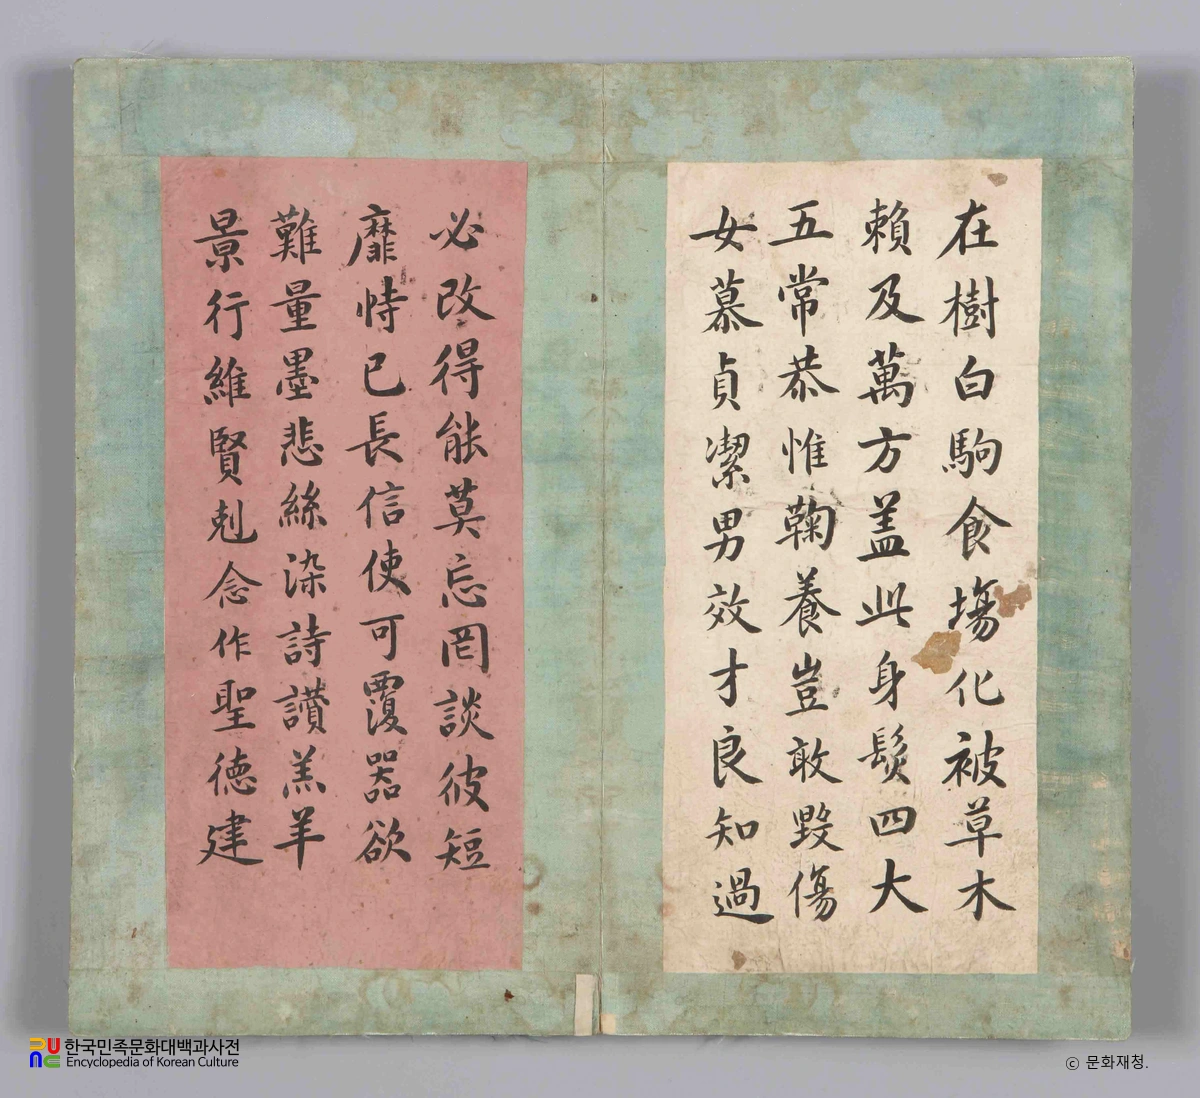 在樹白駒食塲化被草木
賴及萬方盖此身髮四大
五常恭惟鞠養豈敢毀傷
女慕貞潔男效才良知過
必改得能莫忘罔談彼短
靡恃已長信使可覆器欲
難量墨悲絲染詩讃羔羊
景行維賢剋念作聖德建
한국민족문화대백과사전
Encyclopedia of Korean Culture
ⓒ 문화재청.